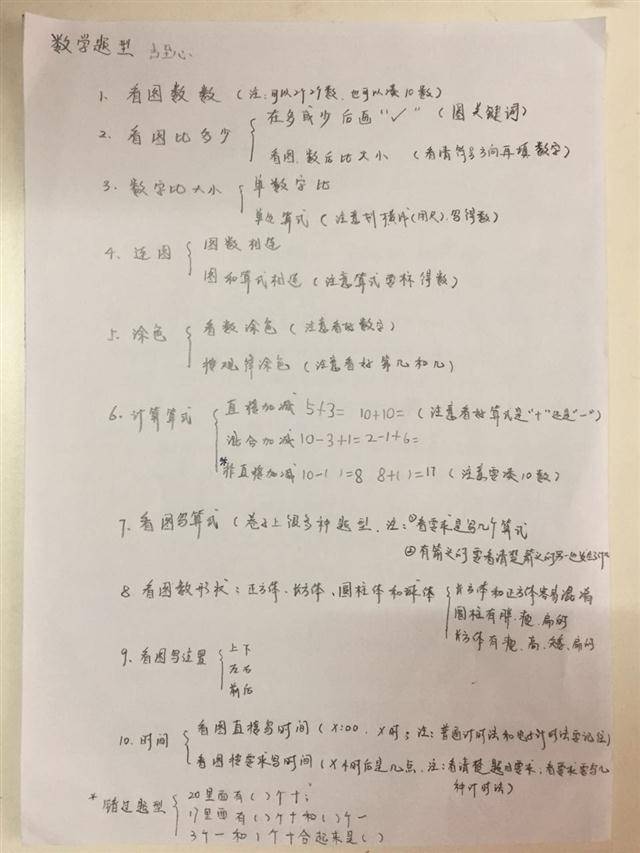 数学题型
1. 看图数数（注:可以2个2个数,也可以凑10数）
2. 看图比多少 在多或少后画"✓"（圈关键词）
看图,数后比大小（看清符号方向再填数字）
3. 数字比大小 单数字比
单和算式（注意划横线(用尺),写得数）
4. 连图 图数相连
图和算式相连（注意算式要标得数）
5. 涂色 看数涂色（注意看好数字）
按规律涂色（注意看好第几和几）
6. 计算算式 直接加减 5+3= 10+10=（注意看好算式是"+"还是"-"）
混合加减 10-3+1= 2-1+6=
*非直接加减 10-( )=8 8+( )=17（注意要凑10数）
7. 看图写算式（卷子上很多种题型.注:①看要求是写几个算式
②有箭头的要看清楚箭头的
8 看图数形状:正方体.长方体、圆柱体和球体 长方体和正方体容易混淆
圆柱有胖.瘦.扁的
长方体有瘦、高、矮、扁的
9. 看图写位置 上下
左右
前后
10. 时间 看图直接写时间（X:00、X时;注:普通计时法和电子计时法要记住）
看图按要求写时间（X小时后是几点.注:看清楚题目要求,看要求要写几
种计时法）
* 错过题型 20里面有( )个十;
17里面有( )个十和( )个一
3个一和1个十合起来是( )